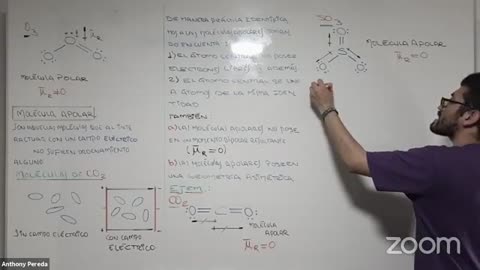 O3
μR
O
O
O
MOLÉCULA POLAR
μR ≠ 0
MOLÉCULA APOLAR
SON AQUELLAS MOLÉCULAS QUE AL INTE
RACTUAR CON UN CAMPO ELÉCTRICO
NO SUFREN ORDENAMIENTO
ALGUNO
MOLÉCULAS DE CO2
SIN CAMPO ELÉCTRICO
CON CAMPO
ELÉCTRICO
DE MANERA PRÁCTICA
MOS A LAS MOLÉCULAS APOLARES
EN CUENTA
1) EL ÁTOMO CENTRAL NO POSEE
ELECTRONES LIBRES
2) EL ÁTOMO CENTRAL SE UNE
A ÁTOMOS DE LA MISMA IDEN
TIDAD
TAMBIÉN
a) LAS MOLÉCULAS APOLARES NO POSE
EN UN MOMENTO DIPOLAR RESULTANTE
(μR = 0)
b) LAS MOLÉCULAS APOLARES POSEEN
UNA GEOMETRÍA SIMÉTRICA
EJEM:
CO2
O=C=O
MOLÉCULA
APOLAR
μR = 0
SO3
O
S
O
O
MOLÉCULA APOLAR
μR = 0
Anthony Pereda
zoom